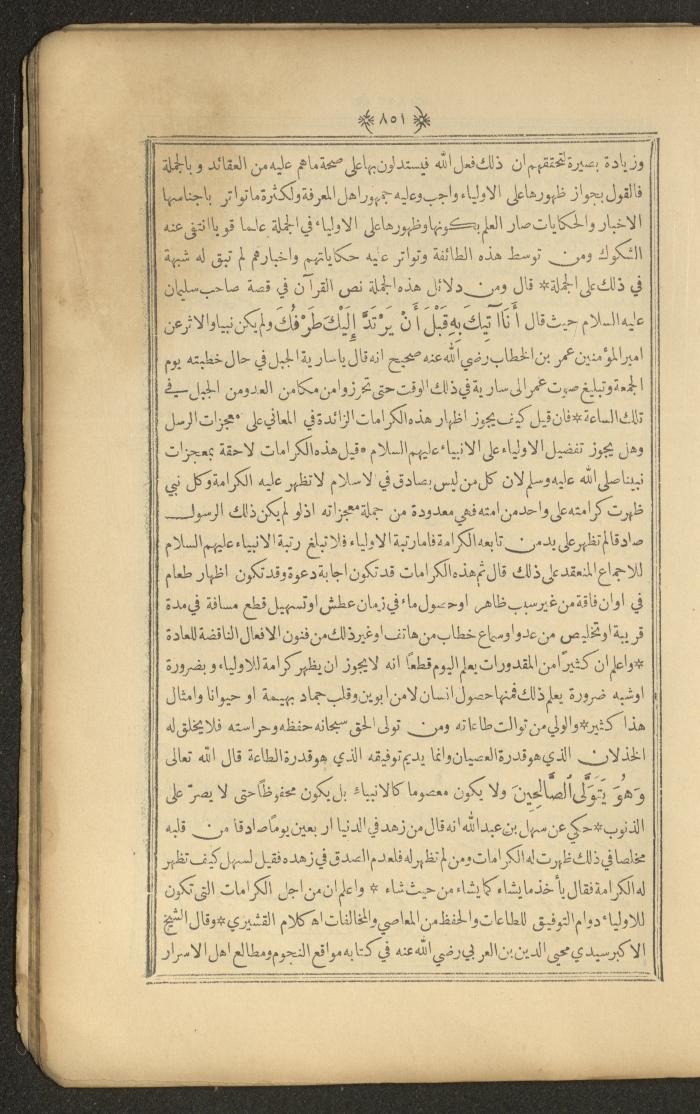 ﴿٨٥١﴾
وزيادة بصيرة لتحققهم ان ذلك فعل الله فيستدلون بها على صحة ما هم عليه من العقائد و بالجملة
فالقول بجواز ظهورها على الاولياء واجب وعليه جمهور اهل المعرفة ولكثرة ما تواتر باجناسها
الاخبار والحكايات صار العلم بكونها وظهورها على الاولياء في الجملة علما قويا انتفى عنه
الشكوك ومن توسط هذه الطائفة وتواتر عليه حكاياتهم واخبارهم لم تبق له شبهة
في ذلك على الجملة * قال ومن دلائل هذه الجملة نص القرآن في قصة صاحب سليمان
عليه السلام حيث قال أَنَا آتِيكَ بِهِ قَبْلَ أَنْ يَرْتَدَّ إِلَيْكَ طَرْفُكَ ولم يكن نبيا والاثر عن
امير المؤمنين عمر بن الخطاب رضي الله عنه صحيح انه قال يا سارية الجبل في حال خطبته يوم
الجمعة وتبليغ صوت عمر الى سارية في ذلك الوقت حتى تحرزوا من مكامن العدو من الجبل في
تلك الساعة * فان قيل كيف يجوز اظهار هذه الكرامات الزائدة في المعاني على معجزات الرسل
وهل يجوز تفضيل الاولياء على الانبياء عليهم السلام * قيل هذه الكرامات لاحقة بمعجزات
نبينا صلى الله عليه وسلم لان كل من ليس بصادق في الاسلام لا تظهر عليه الكرامة وكل نبي
ظهرت كرامته على واحد من امته فهي معدودة من جملة معجزاته اذ لو لم يكن ذلك الرسول
صادقا لم تظهر على يد من تابعه الكرامة فاما رتبة الاولياء فلا تبلغ رتبة الانبياء عليهم السلام
للاجماع المنعقد على ذلك قال ثم هذه الكرامات قد تكون اجابة دعوة وقد تكون اظهار طعام
في اوان فاقة من غير سبب ظاهر او حصول ماء في زمان عطش او تسهيل قطع مسافة في مدة
قريبة او تخليص من عدو او سماع خطاب من هاتف او غير ذلك من فنون الافعال الناقضة للعادة
* واعلم ان كثيرًا من المقدورات يعلم اليوم قطعًا انه لا يجوز ان يظهر كرامة للاولياء و بضرورة
او شبه ضرورة يعلم ذلك فمنها حصول انسان لا من ابوين وقلب جماد بهيمة او حيوانا وامثال
هذا كثير * والولي من توالت طاعاته ومن تولى الحق سبحانه حفظه وحراسته فلا يخلق له
الخذلان الذي هو قدرة العصيان وانما يديم توفيقه الذي هو قدرة الطاعة قال الله تعالى
وَهُوَ يَتَوَلَّى ٱلصَّالِحِينَ ولا يكون معصوما كالانبياء بل يكون محفوظًا حتى لا يصرّ على
الذنوب * حكي عن سهل بن عبد الله انه قال من زهد في الدنيا اربعين يومًا صادقا من قلبه
مخلصا في ذلك ظهرت له الكرامات ومن لم تظهر له فلعدم الصدق في زهده فقيل لسهل كيف تظهر
له الكرامة فقال يأخذ ما يشاء كما يشاء من حيث شاء * واعلم ان من اجل الكرامات التي تكون
للاولياء دوام التوفيق للطاعات والحفظ من المعاصي والمخالفات اه كلام القشيري * وقال الشيخ
الاكبر سيدي محيي الدين بن العربي رضي الله عنه في كتابه مواقع النجوم ومطالع اهل الاسرار